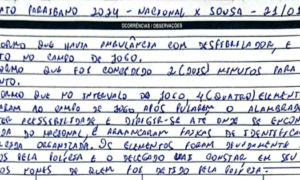 ATO PARAIBANO 2024 - NACIONAL X SOUSA - 21/01
OCORRÊNCIAS / OBSERVAÇÕES
FORMO QUE HAVIA AMBULÂNCIA COM DESFIBRILADOR, E
TO NO CAMPO DE JOGO.
FORMO QUE FOI CONCEDIDO 2 (DOIS) MINUTOS PARA
NTO.
FORMO QUE NO INTERVALO DE JOGO, 4 (QUATRO) ELEMENT
RAM AO CAMPO DE JOGO APÓS PULAREM O ALAMBRA
TER ACESSIBILIDADE E DIRIGIR-SE ATÉ ONDE SE ENCON
DA DO NACIONAL, E ARRANCARAM FAIXAS DE IDENTIFIC
ORGANIZADA. OS ELEMENTOS FORAM DEVIDAMENTE
OS PELA POLÍCIA E O DELEGADO VAI CONSTAR EM SEU
OS NOMES DE QUEM FOI DETIDO PELA POLÍCIA.